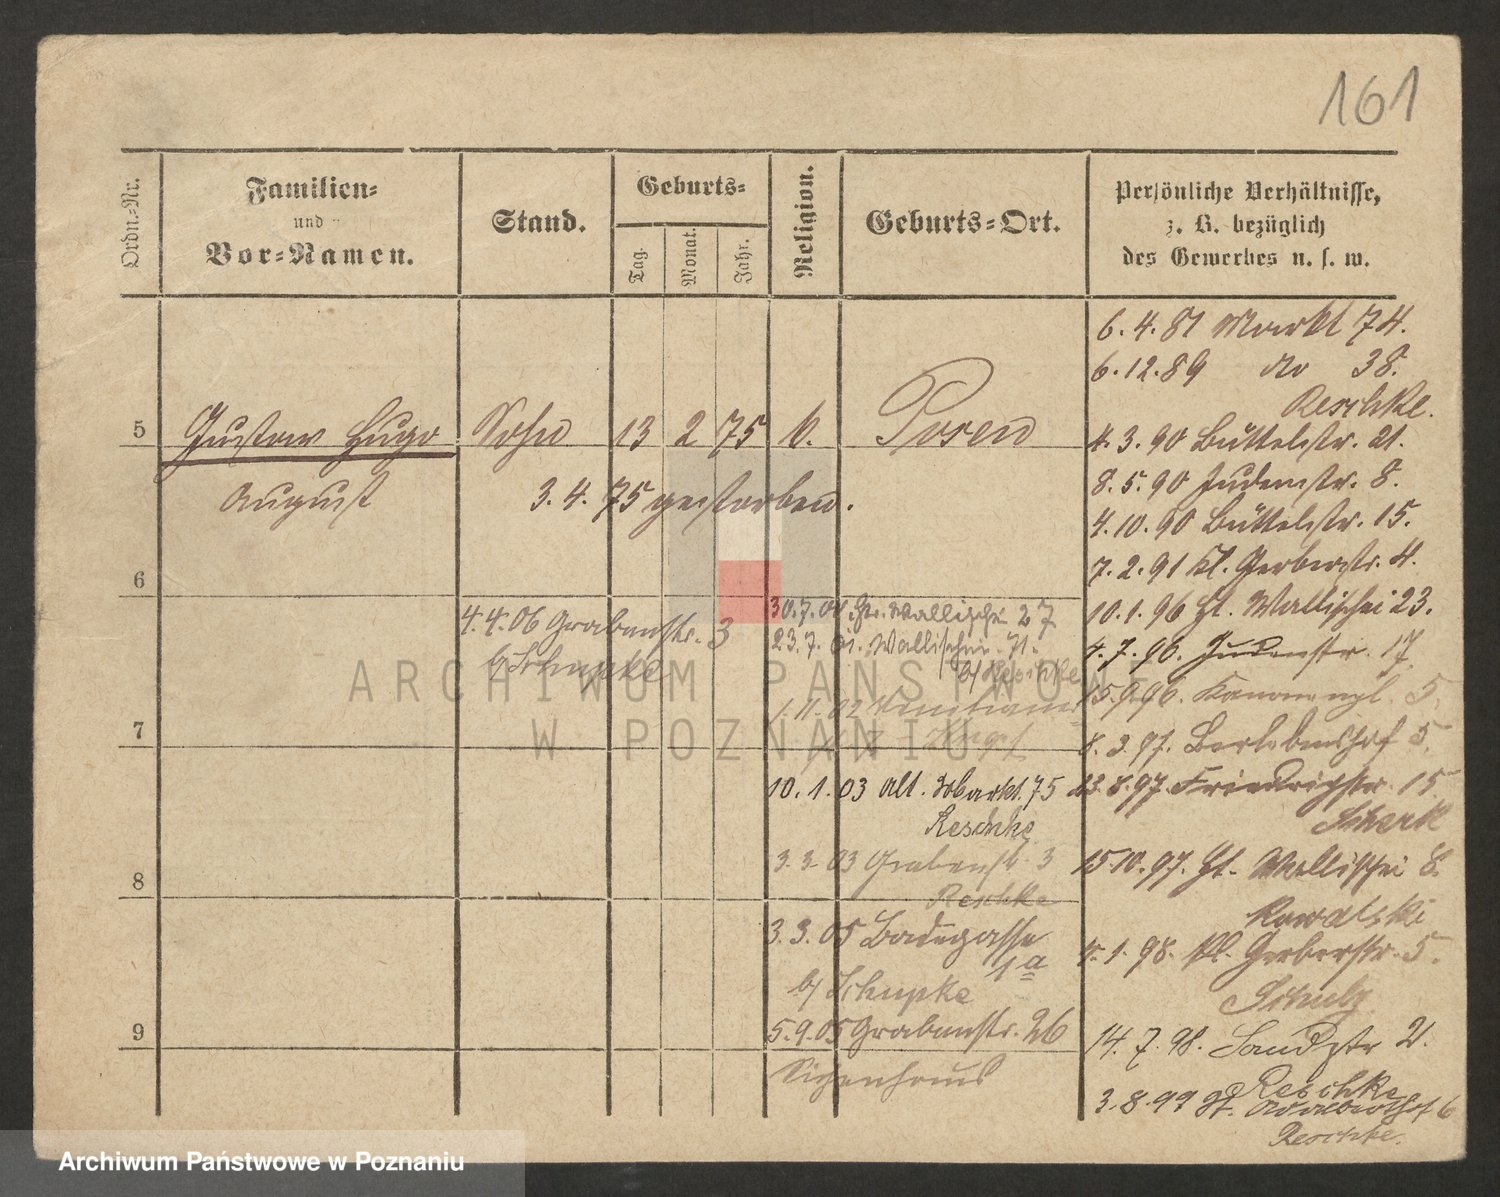 161
Ordn.-Nr.
Familien-
und
Vor-Namen.
Stand.
Geburts-
Tag.
Monat.
Jahr.
Religion.
Geburts-Ort.
Persönliche Verhältnisse,
z. B. bezüglich
des Gewerbes u. s. w.
5 Gustav Hugo Sohn 13 2 75 Posen
August
3. 4. 75 gestorben.
6
4.4.06 Grabenstr. 3
b/ Schupke
7
8
9
30.7.01 Wallischei 27
23.7.01. Wallischei 71.
b/ Reschke
1.11.02
10.1.03 Alt. Markt 75
Reschke
3.3.03 Grabenstr. 3
Reschke
3.3.05 Badegasse
1a
b/ Schupke
5.9.05 Grabenstr. 26
Siechenhaus
6.4.81 Markt 74.
6.12.89 do 38.
Reschke.
4.3.90 Büttelstr. 21.
8.5.90 Judenstr. 8.
4.10.90 Büttelstr. 15.
7.2.91 Kl. Gerberstr. 4.
10.1.96 Ht. Wallischei 23.
4.7.96. Judenstr. 17.
15.9.96. Kanonenpl. 5.
8.3.97. Berlebenshof 5.
23.8.97. Friedrichstr. 15
Scherk
15.10.97. Ht. Wallischei 8.
Kowalski
4.1.98. Kl. Gerberstr. 5.
Schulz
14.7.98. Sandstr 2.
Reschke
3.8.99 St. Adalberthof 6
Reschke.
ARCHIWUM PAŃSTWOWE
W POZNANIU
Archiwum Państwowe w Poznaniu